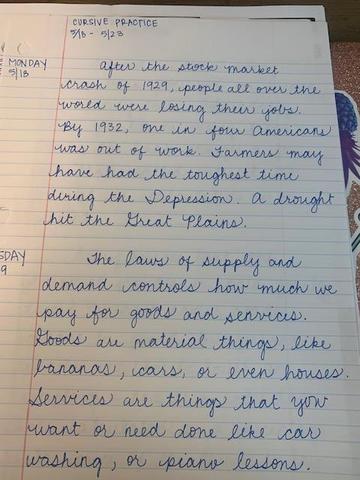 CURSIVE PRACTICE
5/18 - 5/23
MONDAY
5/18
After the stock market
crash of 1929, people all over the
world were losing their jobs.
By 1932, one in four Americans
was out of work. Farmers may
have had the toughest time
during the Depression. A drought
hit the Great Plains.
SDAY
9
The laws of supply and
demand controls how much we
pay for goods and services.
Goods are material things, like
bananas, cars, or even houses.
Services are things that you
want or need done like car
washing, or piano lessons.